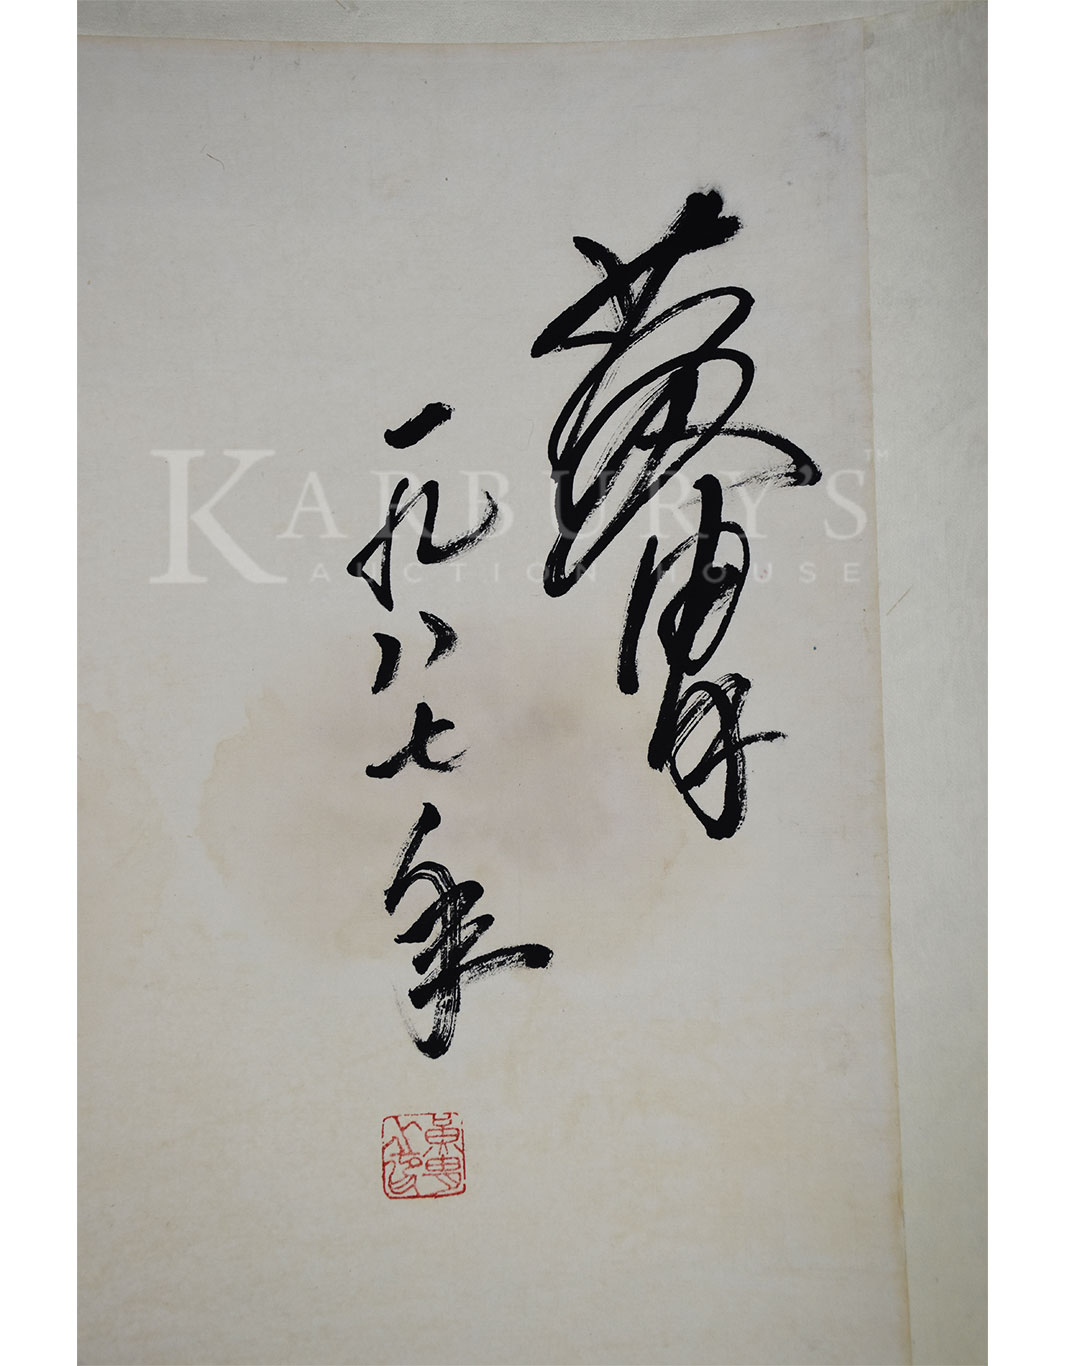 黄胄
一九八七年
黄胄之印
KARBURY'S™
AUCTION HOUSE